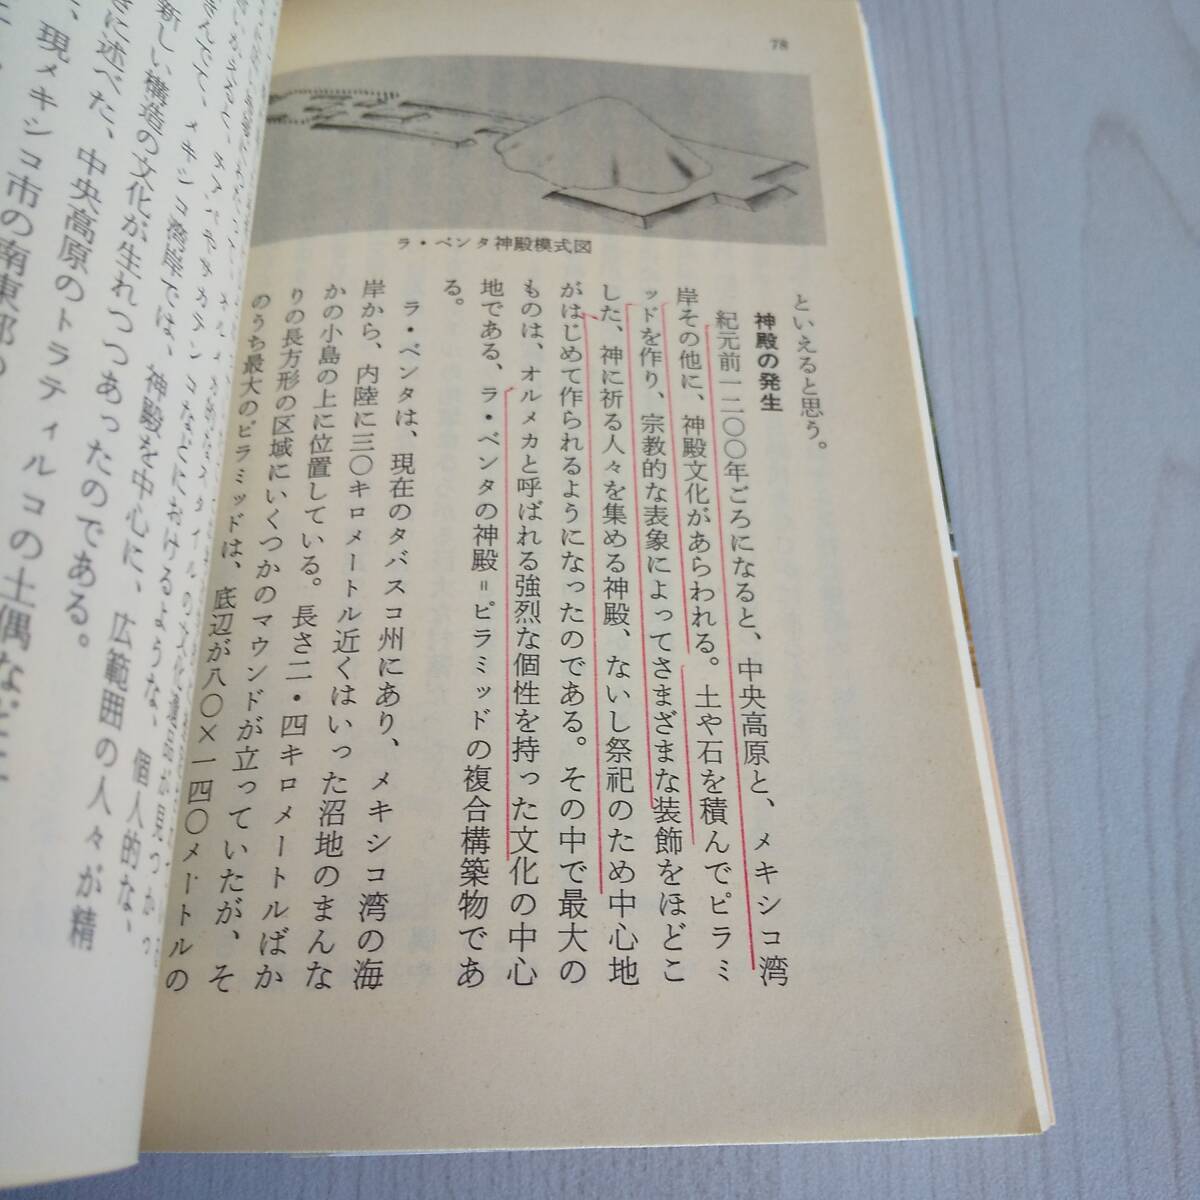 78
ラ・ベンタ神殿模式図
といえると思う。
神殿の発生
紀元前一二〇〇年ごろになると、中央高原と、メキシコ湾
岸その他に、神殿文化があらわれる。土や石を積んでピラミ
ッドを作り、宗教的な表象によってさまざまな装飾をほどこ
した、神に祈る人々を集める神殿、ないし祭祀のため中心地
がはじめて作られるようになったのである。その中で最大の
ものは、オルメカと呼ばれる強烈な個性を持った文化の中心
地である、ラ・ベンタの神殿=ピラミッドの複合構築物であ
る。
ラ・ベンタは、現在のタバスコ州にあり、メキシコ湾の海
岸から、内陸に三〇キロメートル近くはいった沼地のまんな
かの小島の上に位置している。長さ二・四キロメートルばか
りの長方形の区域にいくつかのマウンドが立っていたが、そ
のうち最大のピラミッドは、底辺が八〇×一四〇メートルの
メキシコ湾岸では、神殿を中心に、広範囲の人々が精
新しい構造の文化が生れつつあったのである。
に述べた、中央高原のトラティルコの土偶など
現メキシコ市の南東部の